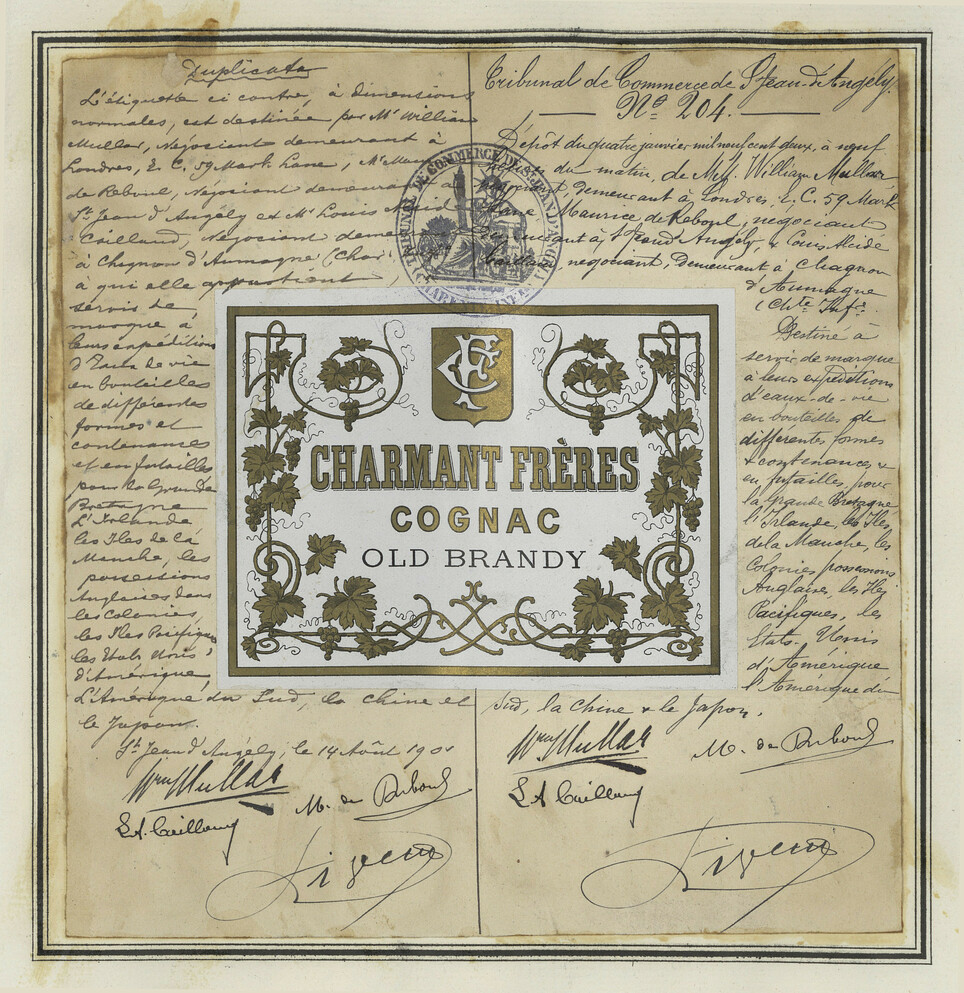 Duplicata
L'étiquette ci contre, à dimensions
normales, est destinée par Mr William
Mullar, Négociant demeurant à
Londres, E. C. 59 Mark Lane; Mr
de Reboul, Négociant demeurant à
St Jean d'Angély et Mr Louis
Caillaud, Négociant
à Chagnon d'Aumagne (Char
à qui elle appartient
servir de
marque à
leurs expéditions
d'Eaux de vie
en bouteilles
de différentes
formes et
contenances
et en futailles
pour la Grande
Bretagne
L'Irlande
les Iles de la
Manche, les
possessions
Anglaises dans
les Colonies
les Iles Pacifiques
les Etats Unis
d'Amérique,
L'Amérique du Sud, la Chine et
le Japon.
St Jean d'Angély, le 14 Août 1901
Wm Mullar
M. de Reboul
L. A. Caillaud
Tribunal de Commerce de St Jean-d'Angély.
No 204.
Dépôt du quatre janvier mil neuf cent deux, à neuf
du matin, de MM. William Mullar
négociant, demeurant à Londres, E. C. 59 Mark
Lane, Maurice de Reboul, négociant
demeurant à St Jean d'Angély, & Louis Alcide
Caillaud, négociant, demeurant à Chagnon
d'Aumagne
(Chte Infre
Destiné à
servir de marque
à leurs expéditions
d'eaux-de-vie
en bouteilles de
différentes formes
& contenances &
en futailles pour
la Grande Bretagne
l'Irlande, les Iles
de la Manche, les
Colonies possessions
Anglaises, les Iles
Pacifiques, les
Etats-Unis
d'Amérique
l'Amérique du
Sud, la Chine & le Japon.
Wm Mullar
M. de Reboul
L A Caillaud
TRIBUNAL DE COMMERCE DE ST JEAN D'ANGÉLY
CHARMANT FRÈRES
COGNAC
OLD BRANDY